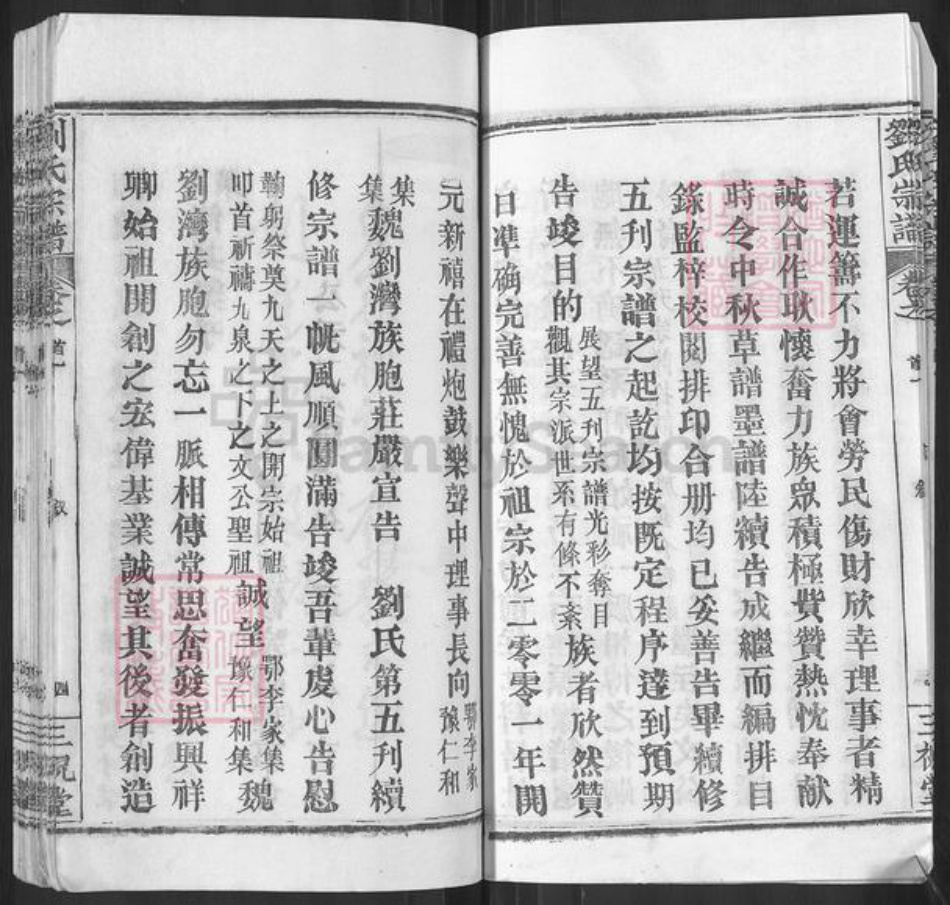 劉氏宗譜
卷之首一
三槐堂
若運籌不力將會勞民傷財欣幸理事者精
誠合作耿懷奮力族眾積極贊熱忱奉獻
時令中秋草譜墨譜陸續告成繼而編排目
錄監梓校閱排印合册均已妥善告畢續修
五刋宗譜之起訖均按既定程序達到預期
告竣目的
展望五刋宗譜光彩奪目
觀其宗派世系有條不紊
族者欣然贊
曰準确完善無愧於祖宗於二零零一年開
元新禧在禮炮鼓樂聲中理事長向
鄂李家
豫仁和
集
集
魏劉灣族胞莊嚴宣告 劉氏第五刋續
修宗譜一帆風順圓滿告竣吾輩虔心告慰
鞠躬祭奠九天之上之開宗始祖
叩首祈禱九泉之下之文公聖祖
誠望
鄂李家集
豫仁和集
魏
劉灣族胞勿忘一脈相傳常思奮發振興祥
卿始祖開創之宏偉基業誠望其後者創造
劉氏宗譜
卷之
首一
四
三槐堂
FamilySearch